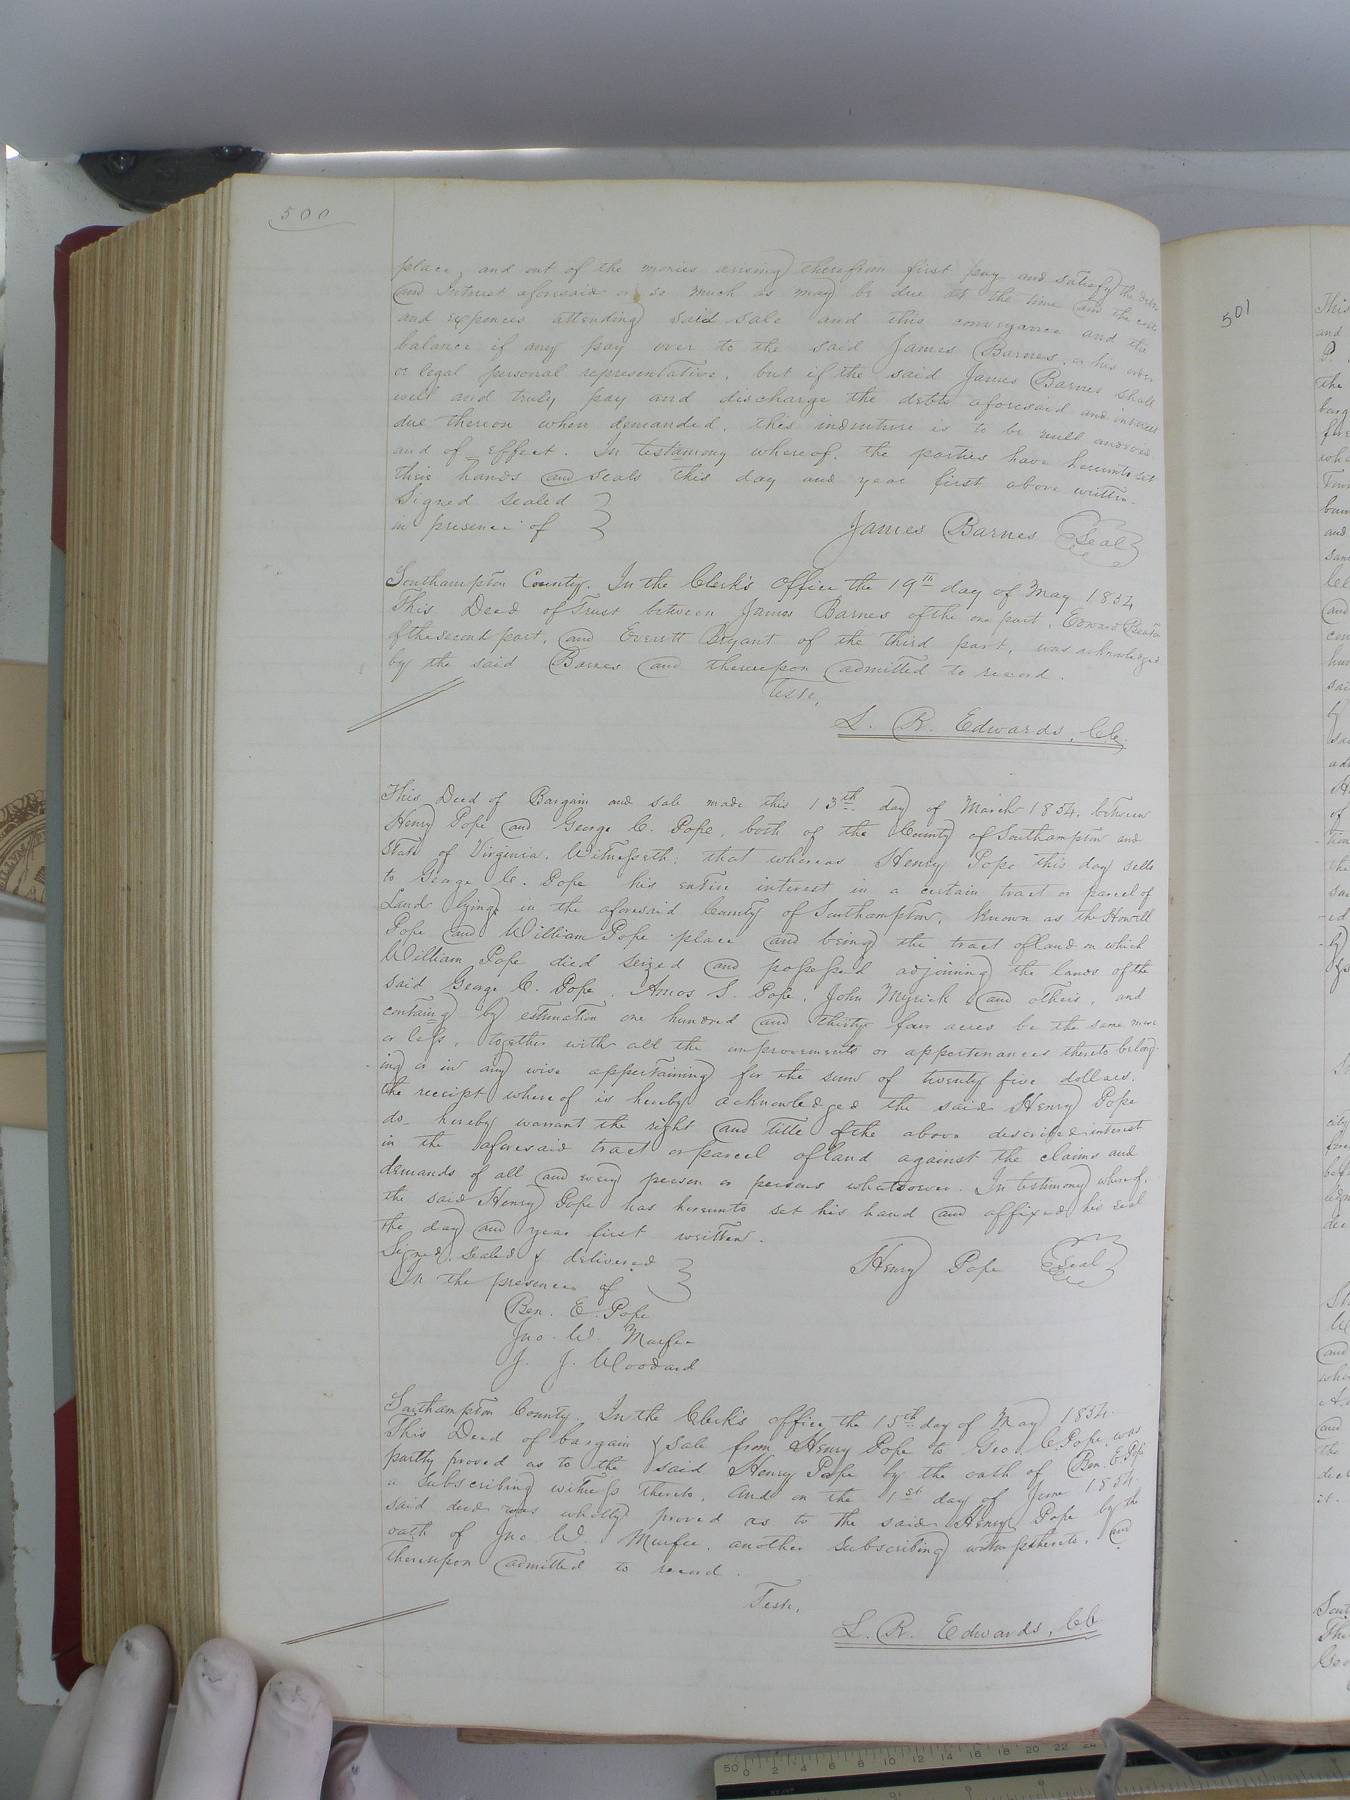 500
place, and out of the monies arising therefrom first pay and satisfy the debts
and interest aforesaid or so much as may be due at the time and the costs
and expences attending said sale and this conveyance and the
balance if any pay over to the said James Barnes, or his order
or legal personal representative, but if the said James Barnes shall
well and truly pay and discharge the debts aforesaid and interest
due thereon when demanded, this indenture is to be null and void
and of effect. In testamony whereof, the parties have hereunto set
their hands and seals this day and year first above written.
Signed sealed
in presence of
James Barnes Seal
Southampton County. In the Clerk's Office the 19th day of May 1854
This Deed of Trust between James Barnes of the one part, Edward Beaton
of the second part, and Everett Bryant of the third part, was acknowledged
by the said Barnes and thereupon admitted to record.
Teste,
L. R. Edwards, C.C.
This Deed of Bargain and sale made this 13th day of March 1854, between
Henry Pope and George C. Pope, both of the County of Southampton and
State of Virginia, Witnesseth: that whereas Henry Pope this day sells
to George C. Pope his entire interest in a certain tract or parcel of
Land lying in the aforesaid County of Southampton, known as the Howell
Pope and William Pope place and being the tract of land on which
William Pope died seized and possessed adjoining the lands of the
said George C. Pope, Amos S. Pope, John Myrick and others, and
containg by estimation one hundred and thirty four acres be the same more
or less, together with all the improvements or appertenances thereto belong-
-ing or in any wise appertaining for the sum of twenty five dollars,
the receipt whereof is hereby acknowledged the said Henry Pope
do hereby warrant the right and title of the above described interest
in the aforesaid tract or parcel of land against the claims and
demands of all and every person or persons whatsoever. In testimony whereof,
the said Henry Pope has hereunto set his hand and affixed his seal
the day and year first written.
Signed, sealed & delivered
In the presence of
Henry Pope Seal
Ben. E. Pope
Jno. W. Murfee
J. J. Woodard
Southampton County. In the Clerk's office the 15th day of May 1854.
This Deed of bargain & sale from Henry Pope to Geo. C. Pope, was
partly proved as to the said Henry Pope by the oath of Ben. E. Pope
a subscribing witness thereto, and on the 1st day of June 1854
said deed was wholly proved as to the said Henry Pope by the
oath of Jno. W. Murfee, another subscribing witness thereto, and
thereupon admitted to record.
Teste,
L. R. Edwards, CC
501